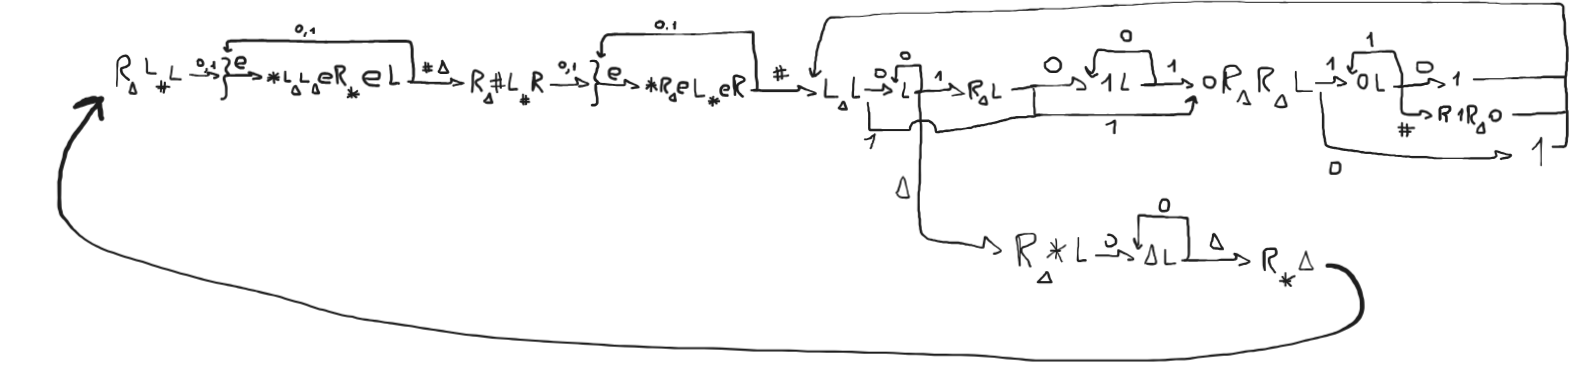 0,1 0,1 0 1
R_Δ L_# L 0,1 } e *L_Δ L_Δ e R_* e L # Δ R_Δ # L_# R 0,1 } e *R_Δ e L_* e R # L_Δ L 0 L 0 1 R_Δ L 0 1 L 1 0 R_Δ R_Δ L 1 0 L 0 1
1 1 # R 1 R_Δ 0
0 1
Δ
0
R_Δ * L 0 Δ L Δ R_* Δ